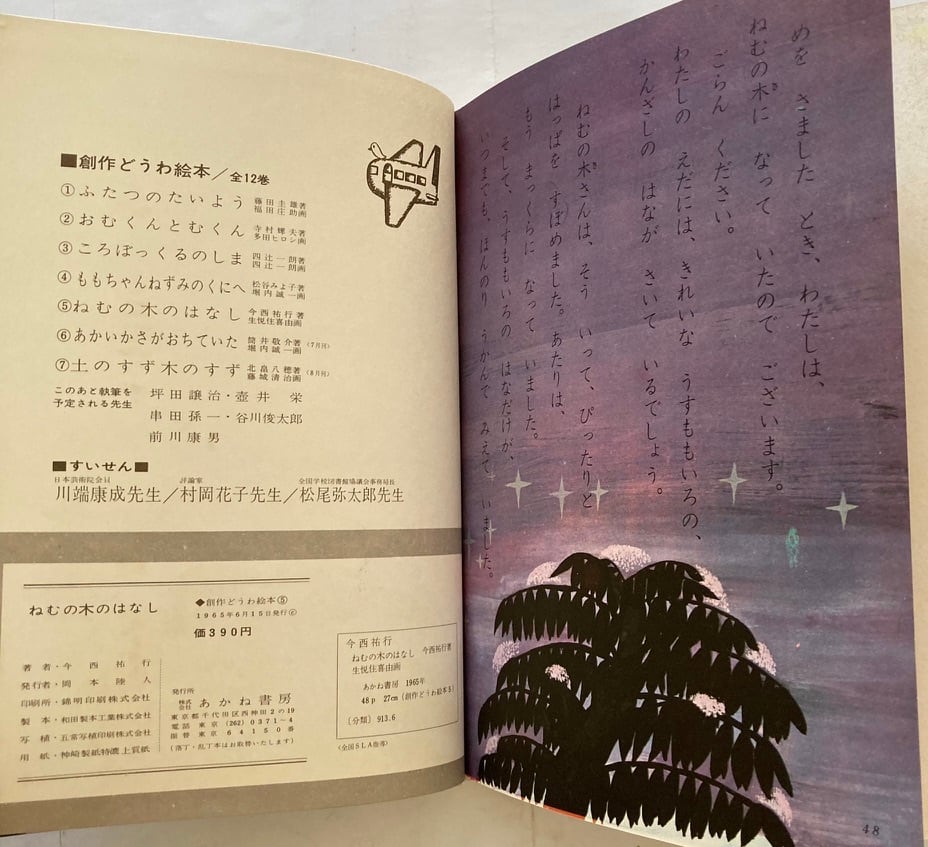 めを さました とき、わたしは、
ねむの木に なって いたので ございます。
ごらん ください。
わたしの えだには、きれいな うすももいろの、
かんざしの はなが さいて いるでしょう。
ねむの木さんは、そう いって、ぴったりと
はっぱを すぼめました。あたりは、
もう まっくらに なって いました。
そして、うすももいろの はなだけが、
いつまでも、ほんのり うかんで みえて いました。
48
■創作どうわ絵本／全12巻
①ふたつのたいよう 藤田圭雄著 福田庄助画
②おむくんとむくん 寺村輝夫著 多田ヒロシ画
③ころぼっくるのしま 四辻一朗著 四辻一朗画
④ももちゃんねずみのくにへ 松谷みよ子著 堀内誠一画
⑤ねむの木のはなし 今西祐行著 生悦住喜由画
⑥あかいかさがおちていた 筒井敬介著 堀内誠一画 (7月刊)
⑦土のすず木のすず 北畠八穂著 藤城清治画 (8月刊)
このあと執筆を
予定される先生
坪田譲治・壺井 栄
串田孫一・谷川俊太郎
前川康男
■すいせん■
日本芸術院会員 評論家 全国学校図書館協議会事務局長
川端康成先生／村岡花子先生／松尾弥太郎先生
ねむの木のはなし
◆創作どうわ絵本⑤
1965年6月15日発行©
価390円
著者・今西祐行
発行者・岡本陸人
印刷所・錦明印刷株式会社
製本・和田製本工業株式会社
写植・五常写植印刷株式会社
用紙・神崎製紙特漉上質紙
発行所
株式会社 あかね書房
東京都千代田区西神田2の19
電話 東京 (262) 0371〜4
振替 東京 64150番
(落丁・乱丁本はお取替いたします)
今西祐行
ねむの木のはなし 今西祐行著
生悦住喜由画
あかね書房 1965年
48p 27cm (創作どうわ絵本5)
〔分類〕913.6
(全国SLA指導)